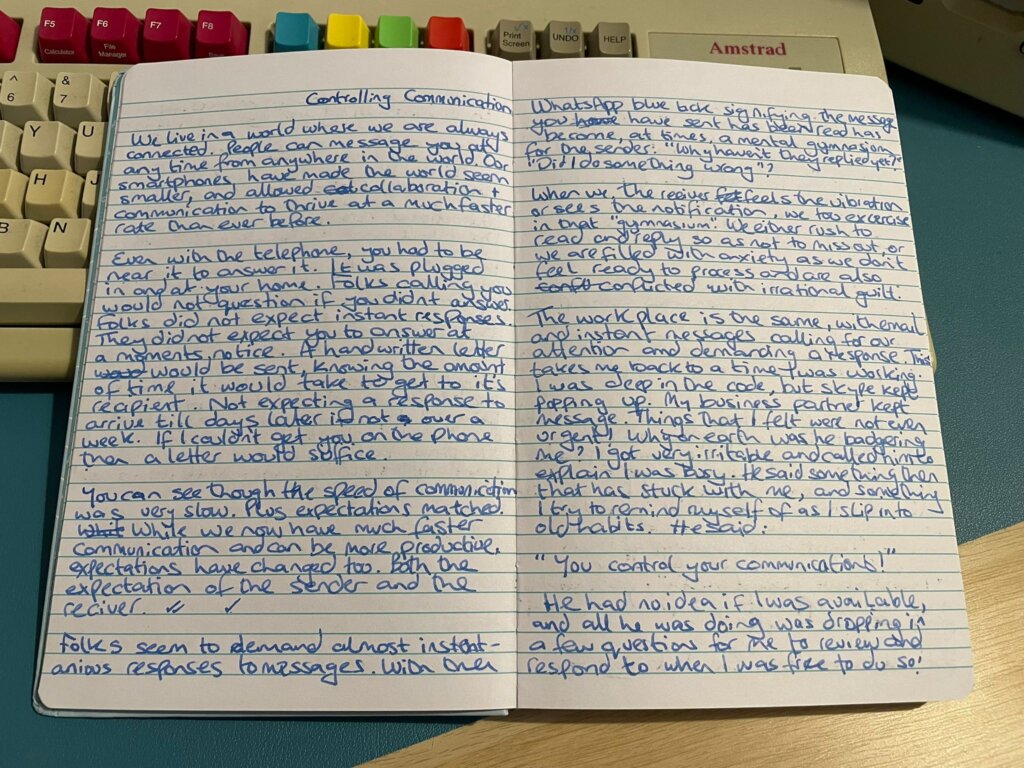 F5
Calculator
F6
File
Manager
F7
F8
Print
Screen
UNDO
HELP
Amstrad
^
6
&
7
Y
U
H
J
B
N
Controlling Communication
We live in a world where we are always
connected. People can message you at
any time from anywhere in the world. Our
smartphones have made the world seem
smaller, and allowed collaboration +
communication to thrive at a much faster
rate than ever before.
Even with the telephone, you had to be
near it to answer it. It was plugged
in and at your home. Folks calling you
would not question if you didnt answer
folks did not expect instant responses.
They did not expect you to answer at
a moments notice. A handwritten letter
would be sent, knowing the amount
of time it would take to get to it's
recipient. Not expecting a response to
arrive till days later if not over a
week. If I couldn't get you on the phone
then a letter would suffice.
You can see though the speed of communication
was very slow. Plus expectations matched.
While we now have much faster
communication and can be more productive,
expectations have changed too. Both the
expectation of the sender and the
reciver. ✓✓ ✓
Folks seem to demand almost instant-
anious responses to messages. With then
WhatsApp blue tick signifying the message
you have sent has been read has
become, at times, a mental gymnasium
for the sender. "Why haven't they replied yet?"
"Did I do something wrong"?
When we, the reciver feels the vibration
or sees the notification, we too excercise
in that "gymnasium. We either rush to
read and reply so as not to miss out, or
we are filled with anxiety as we don't
feel ready to process and are also
conflicted with irrational guilt.
The workplace is the same, with email
and instant messages calling for our
attention and demanding a response. This
takes me back to a time I was working.
I was deep in the code, but skype kept
popping up. My business partner kept
message. Things that I felt were not even
urgent! Why on earth was he badgering
me? I got very irritable and called him to
explain I was busy. He said something then
that has stuck with me, and something
I try to remind myself of as I slip into
old habits. He said:
"You control your communications!"
He had no idea if I was available,
and all he was doing was dropping in
a few questions for me to review and
respond to when I was free to do so!